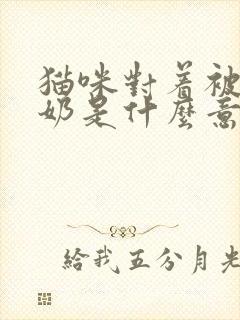 猫咪對着被
奶是什麼意
給我五分月光